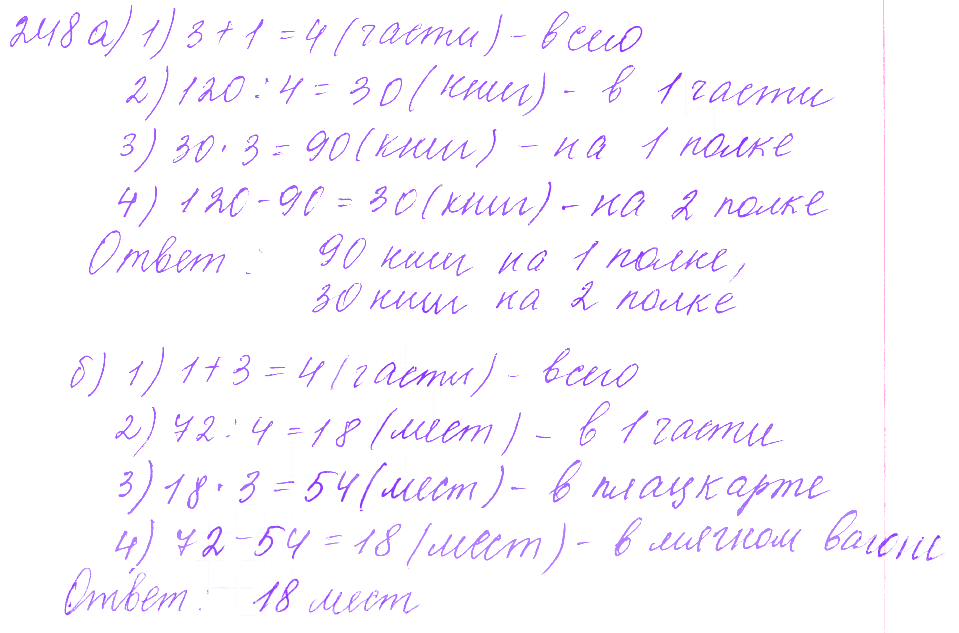 248 а) 1) 3 + 1 = 4 (части) - всего
2) 120 : 4 = 30 (книг) - в 1 части
3) 30 · 3 = 90 (книг) - на 1 полке
4) 120 - 90 = 30 (книг) - на 2 полке
Ответ: 90 книг на 1 полке,
30 книг на 2 полке
б) 1) 1 + 3 = 4 (части) - всего
2) 72 : 4 = 18 (мест) - в 1 части
3) 18 · 3 = 54 (мест) - в плацкарте
4) 72 - 54 = 18 (мест) - в мягком вагоне
Ответ: 18 мест